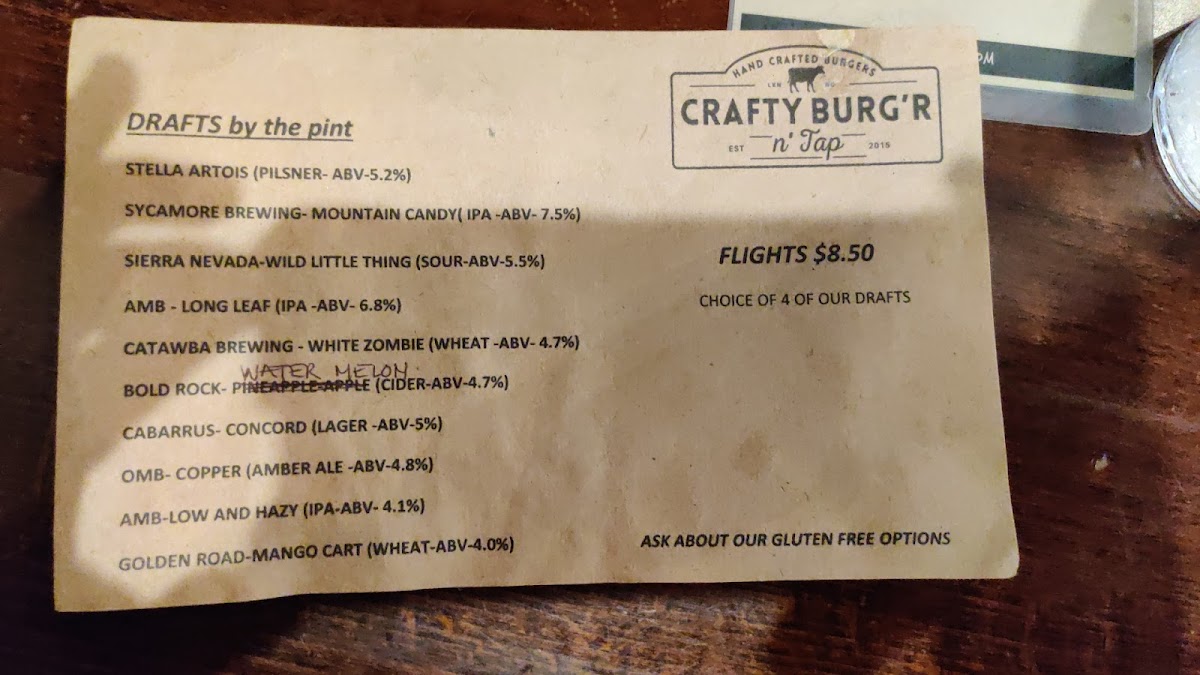 HAND CRAFTED BURGERS
CRAFTY BURG'R
EST n' Tap 2015
DRAFTS by the pint
STELLA ARTOIS (PILSNER- ABV-5.2%)
SYCAMORE BREWING- MOUNTAIN CANDY( IPA -ABV- 7.5%)
SIERRA NEVADA-WILD LITTLE THING (SOUR-ABV-5.5%)
AMB - LONG LEAF (IPA -ABV- 6.8%)
CATAWBA BREWING - WHITE ZOMBIE (WHEAT -ABV- 4.7%)
WATER MELON
BOLD ROCK- PINEAPPLE-APPLE (CIDER-ABV-4.7%)
CABARRUS- CONCORD (LAGER -ABV-5%)
OMB- COPPER (AMBER ALE -ABV-4.8%)
AMB-LOW AND HAZY (IPA-ABV- 4.1%)
GOLDEN ROAD-MANGO CART (WHEAT-ABV-4.0%)
FLIGHTS $8.50
CHOICE OF 4 OF OUR DRAFTS
ASK ABOUT OUR GLUTEN FREE OPTIONS